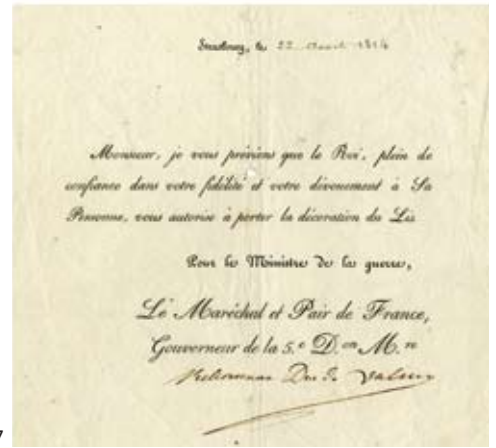 Strasbourg, le 22 Aout 1814
Monsieur, je vous préviens que le Roi, plein de
confiance dans votre fidélité et votre dévouement à Sa
Personne, vous autorise à porter la décoration du Lis
Pour le Ministre de la guerre,
Le Maréchal et Pair de France,
Gouverneur de la 5.e D.on M.re
Duc de Valmy
7